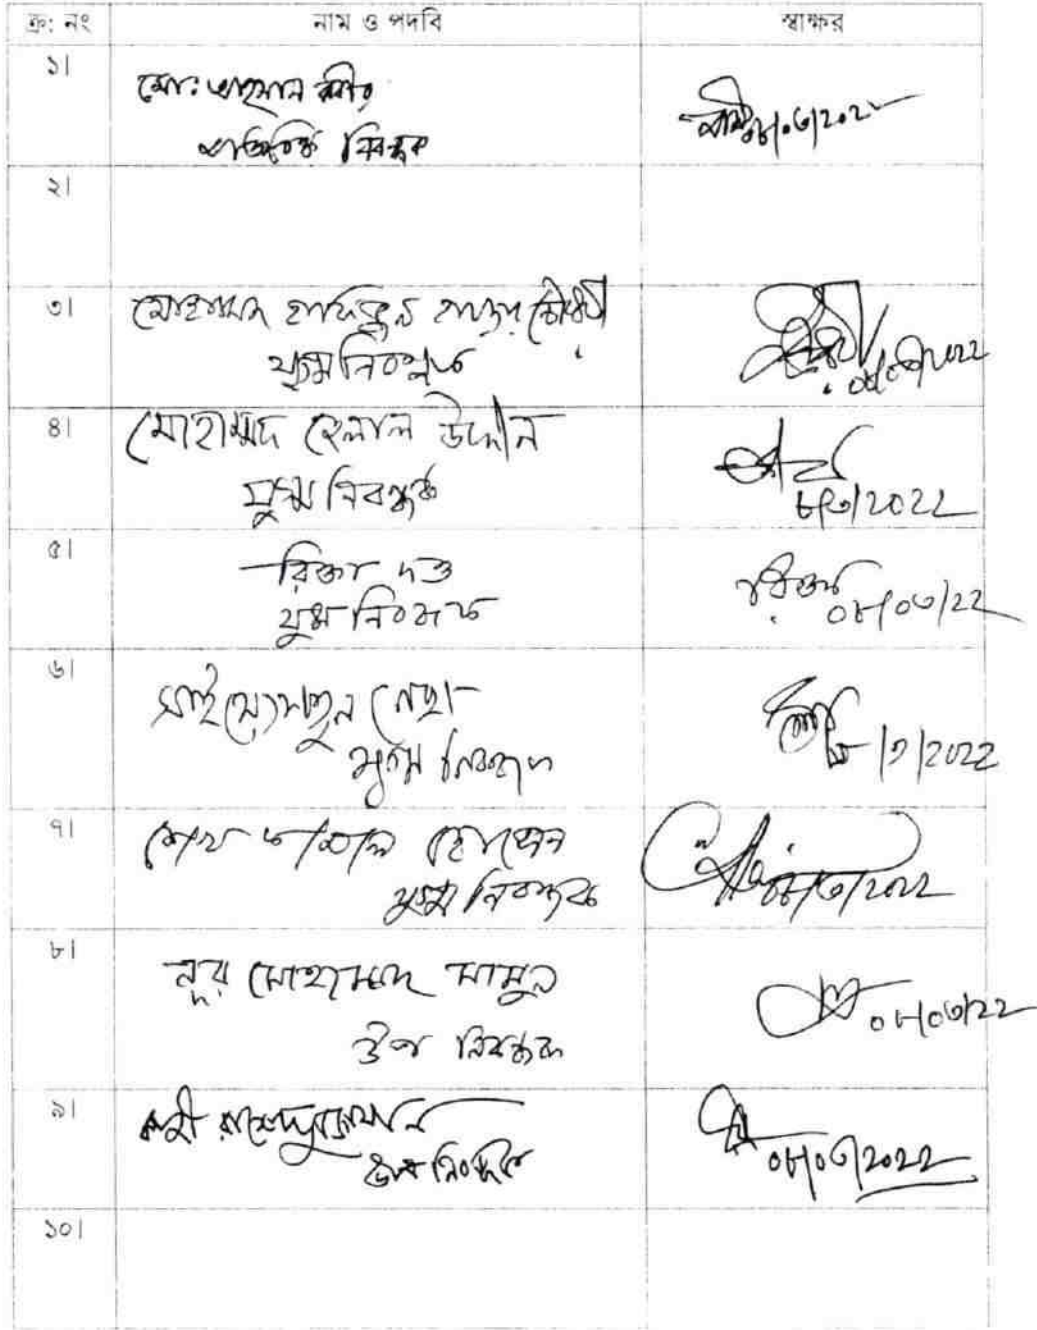 ক্র: নং নাম ও পদবি স্বাক্ষর
১।
মো: আহসান কবীর
অতিরিক্ত নিবন্ধক
০৮/০৩/২০২২
২।
৩।
মোহাম্মদ হাফিজুল হায়দার চৌধুরী
যুগ্ম নিবন্ধক
০৮/০৩/২০২২
৪।
মোহাম্মদ হেলাল উদ্দীন
যুগ্ম নিবন্ধক
৮/৩/2022
৫।
রিক্তা দত্ত
যুগ্ম নিবন্ধক
রিক্তা
০৮/০৩/22
৬।
নেছা
যুগ্ম নিবন্ধক
৮/৩/2022
৭।
শেখ হোসেন
যুগ্ম নিবন্ধক
০৮/৩/2022
৮।
নূর মোহাম্মদ মামুন
উপ নিবন্ধক
০৮/০৩/22
৯।
কাজী রাশেদুজ্জামান
উপ নিবন্ধক
০৮/০৩/2022
১০।